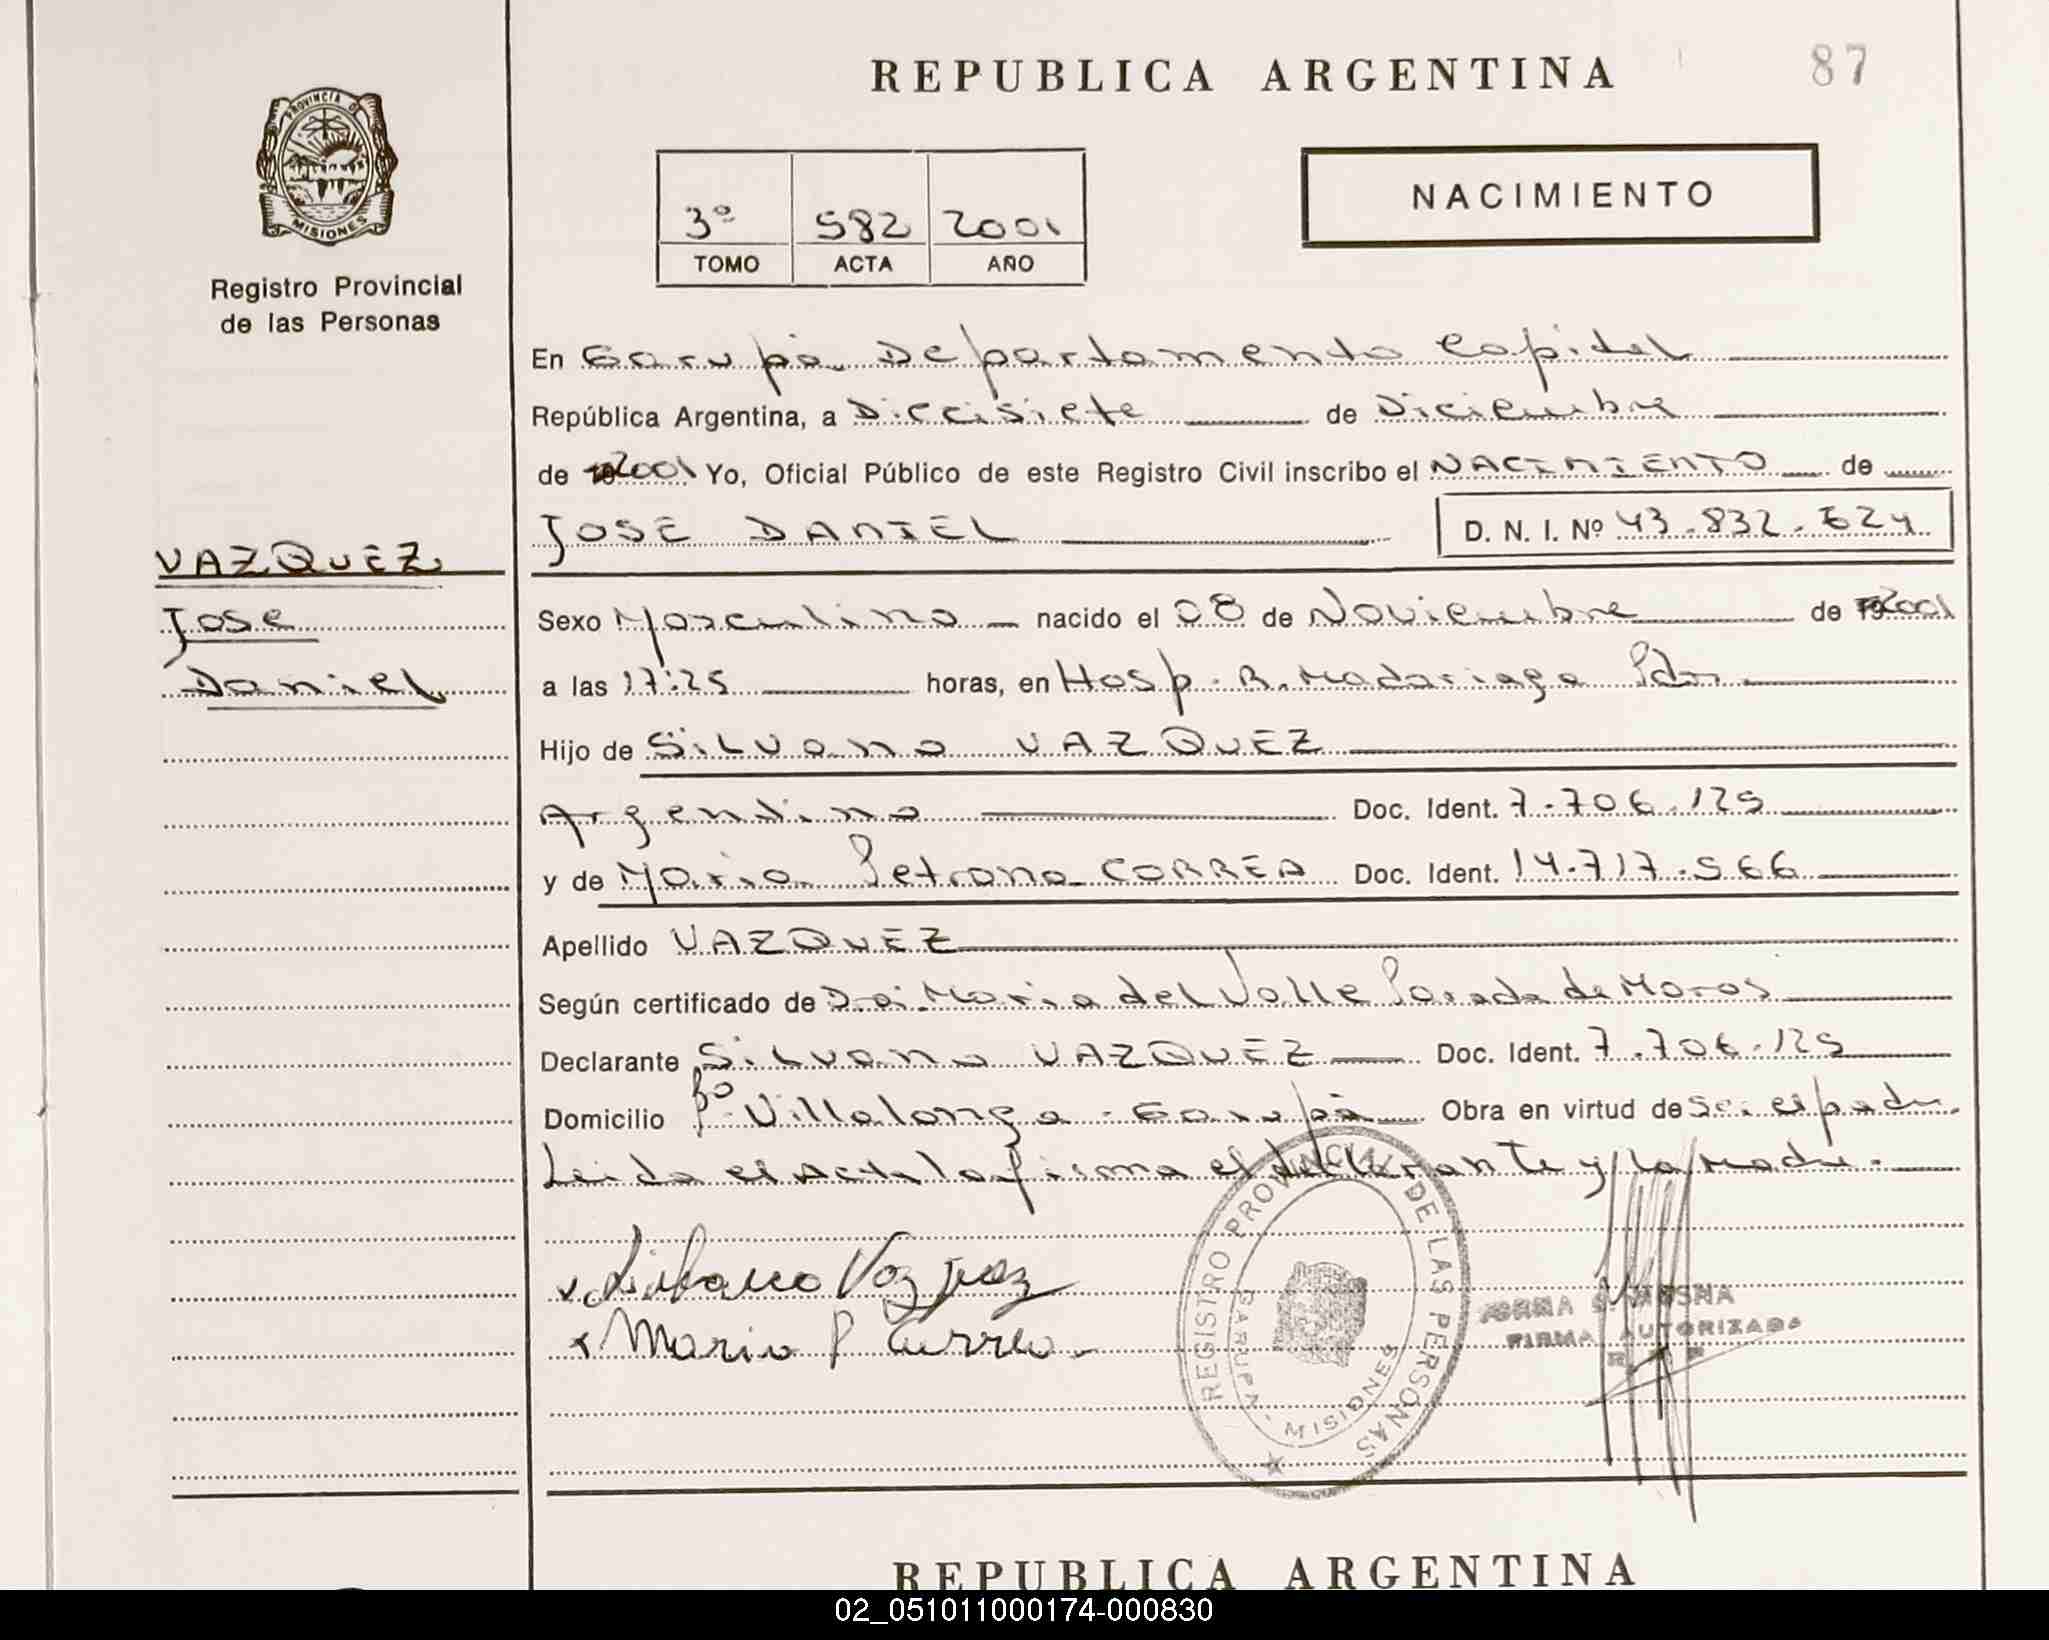 REPUBLICA ARGENTINA
87
PROVINCIA DE
MISIONES
Registro Provincial
de las Personas
3º 582 2001
TOMO ACTA AÑO
NACIMIENTO
En Garupá Departamento Capital
República Argentina, a Diecisiete de Diciembre
de 2001 Yo, Oficial Público de este Registro Civil inscribo el NACIMIENTO de
JOSE DANIEL D. N. I. Nº 43.832.624
VAZQUEZ
Jose
Daniel
Sexo Masculino nacido el 08 de Noviembre de 2001
a las 17:25 horas, en Hosp. R. Madariaga Pdas
Hijo de Silvano VAZQUEZ
Argentino Doc. Ident. 7.706.125
y de Maria Petrona CORREA Doc. Ident. 14.717.566
Apellido VAZQUEZ
Según certificado de Dra. Maria del Valle Parada de Moros
Declarante Silvano VAZQUEZ Doc. Ident. 7.706.125
Domicilio Bº Villalonga - Garupá Obra en virtud de Ser el padre
Leida el Acta la firma el declarante y la Madre.
x Silvano Vazquez
x Maria P Correa
REGISTRO PROVINCIAL DE LAS PERSONAS
GARUPA - MISIONES
FIRMA AUTORIZADA
REPUBLICA ARGENTINA
02_051011000174-000830